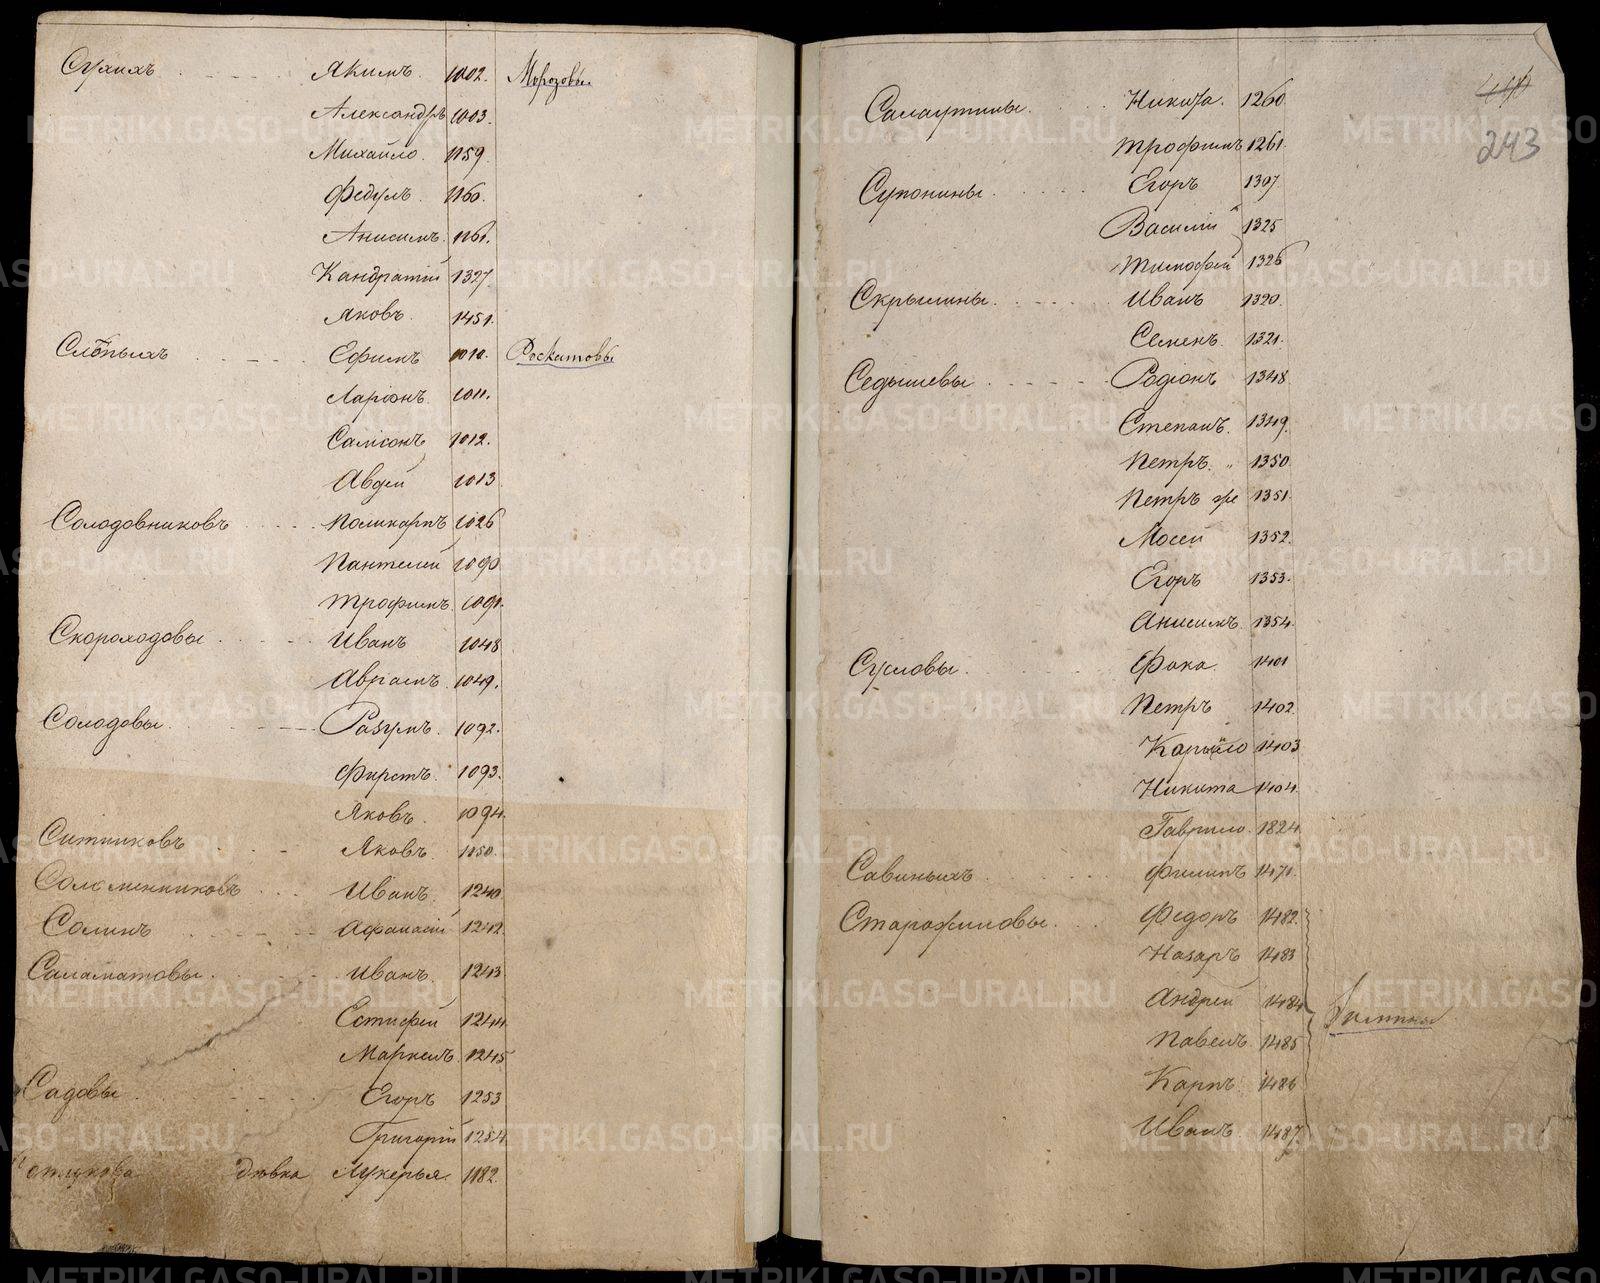 Сухихъ Якимъ. 1002. Морозовы
Александръ 1003.
Михайло. 1159.
Федулъ. 1160.
Анисимъ. 1161.
Кандратій 1327.
Яковъ. 1451.
Слѣпыхъ Ефимъ 1010. Роскатовы
Ларіонъ 1011.
Самсонъ 1012.
Авдей 1013
Солодовниковъ Поликарпъ 1026
Пантелей 1090
Трофимъ. 1091.
Скороходовы Иванъ 1048
Аврамъ. 1049.
Солодовы Разумъ. 1092.
Фирстъ. 1093.
Яковъ. 1094.
Ситниковъ Яковъ. 1150.
Соломенниковъ Иванъ. 1240
Соминъ Афанасій 1242.
Саламатовы Иванъ. 1243
Естифей 1244
Маркелъ. 1245
Садовы Егоръ 1253
Григорій 1254
дѣвка Лукерья. 1182.
440
243
Салаутины. Никита. 1260
Трофимъ 1261.
Супонины Егоръ 1307.
Василій 1325
Тимофей 1326
Скрыпины Иванъ 1320.
Семенъ. 1321.
Седышевы Родіонъ 1348
Степанъ. 1349.
Петръ. „ 1350.
Петръ же 1351.
Мосей 1352.
Егоръ 1353.
Анисимъ. 1354.
Сусловы Фока. 1401
Петръ 1402
Карнило 1403
Никита 1404.
Гаврило. 1824.
Савиныхъ Филипъ 1471.
Старожиловы Федоръ 1482.
Назаръ 1483
Андрей 1484
Павелъ. 1485
Карпъ. 1486
Иванъ. 1487.
METRIKI.GASO-URAL.RU